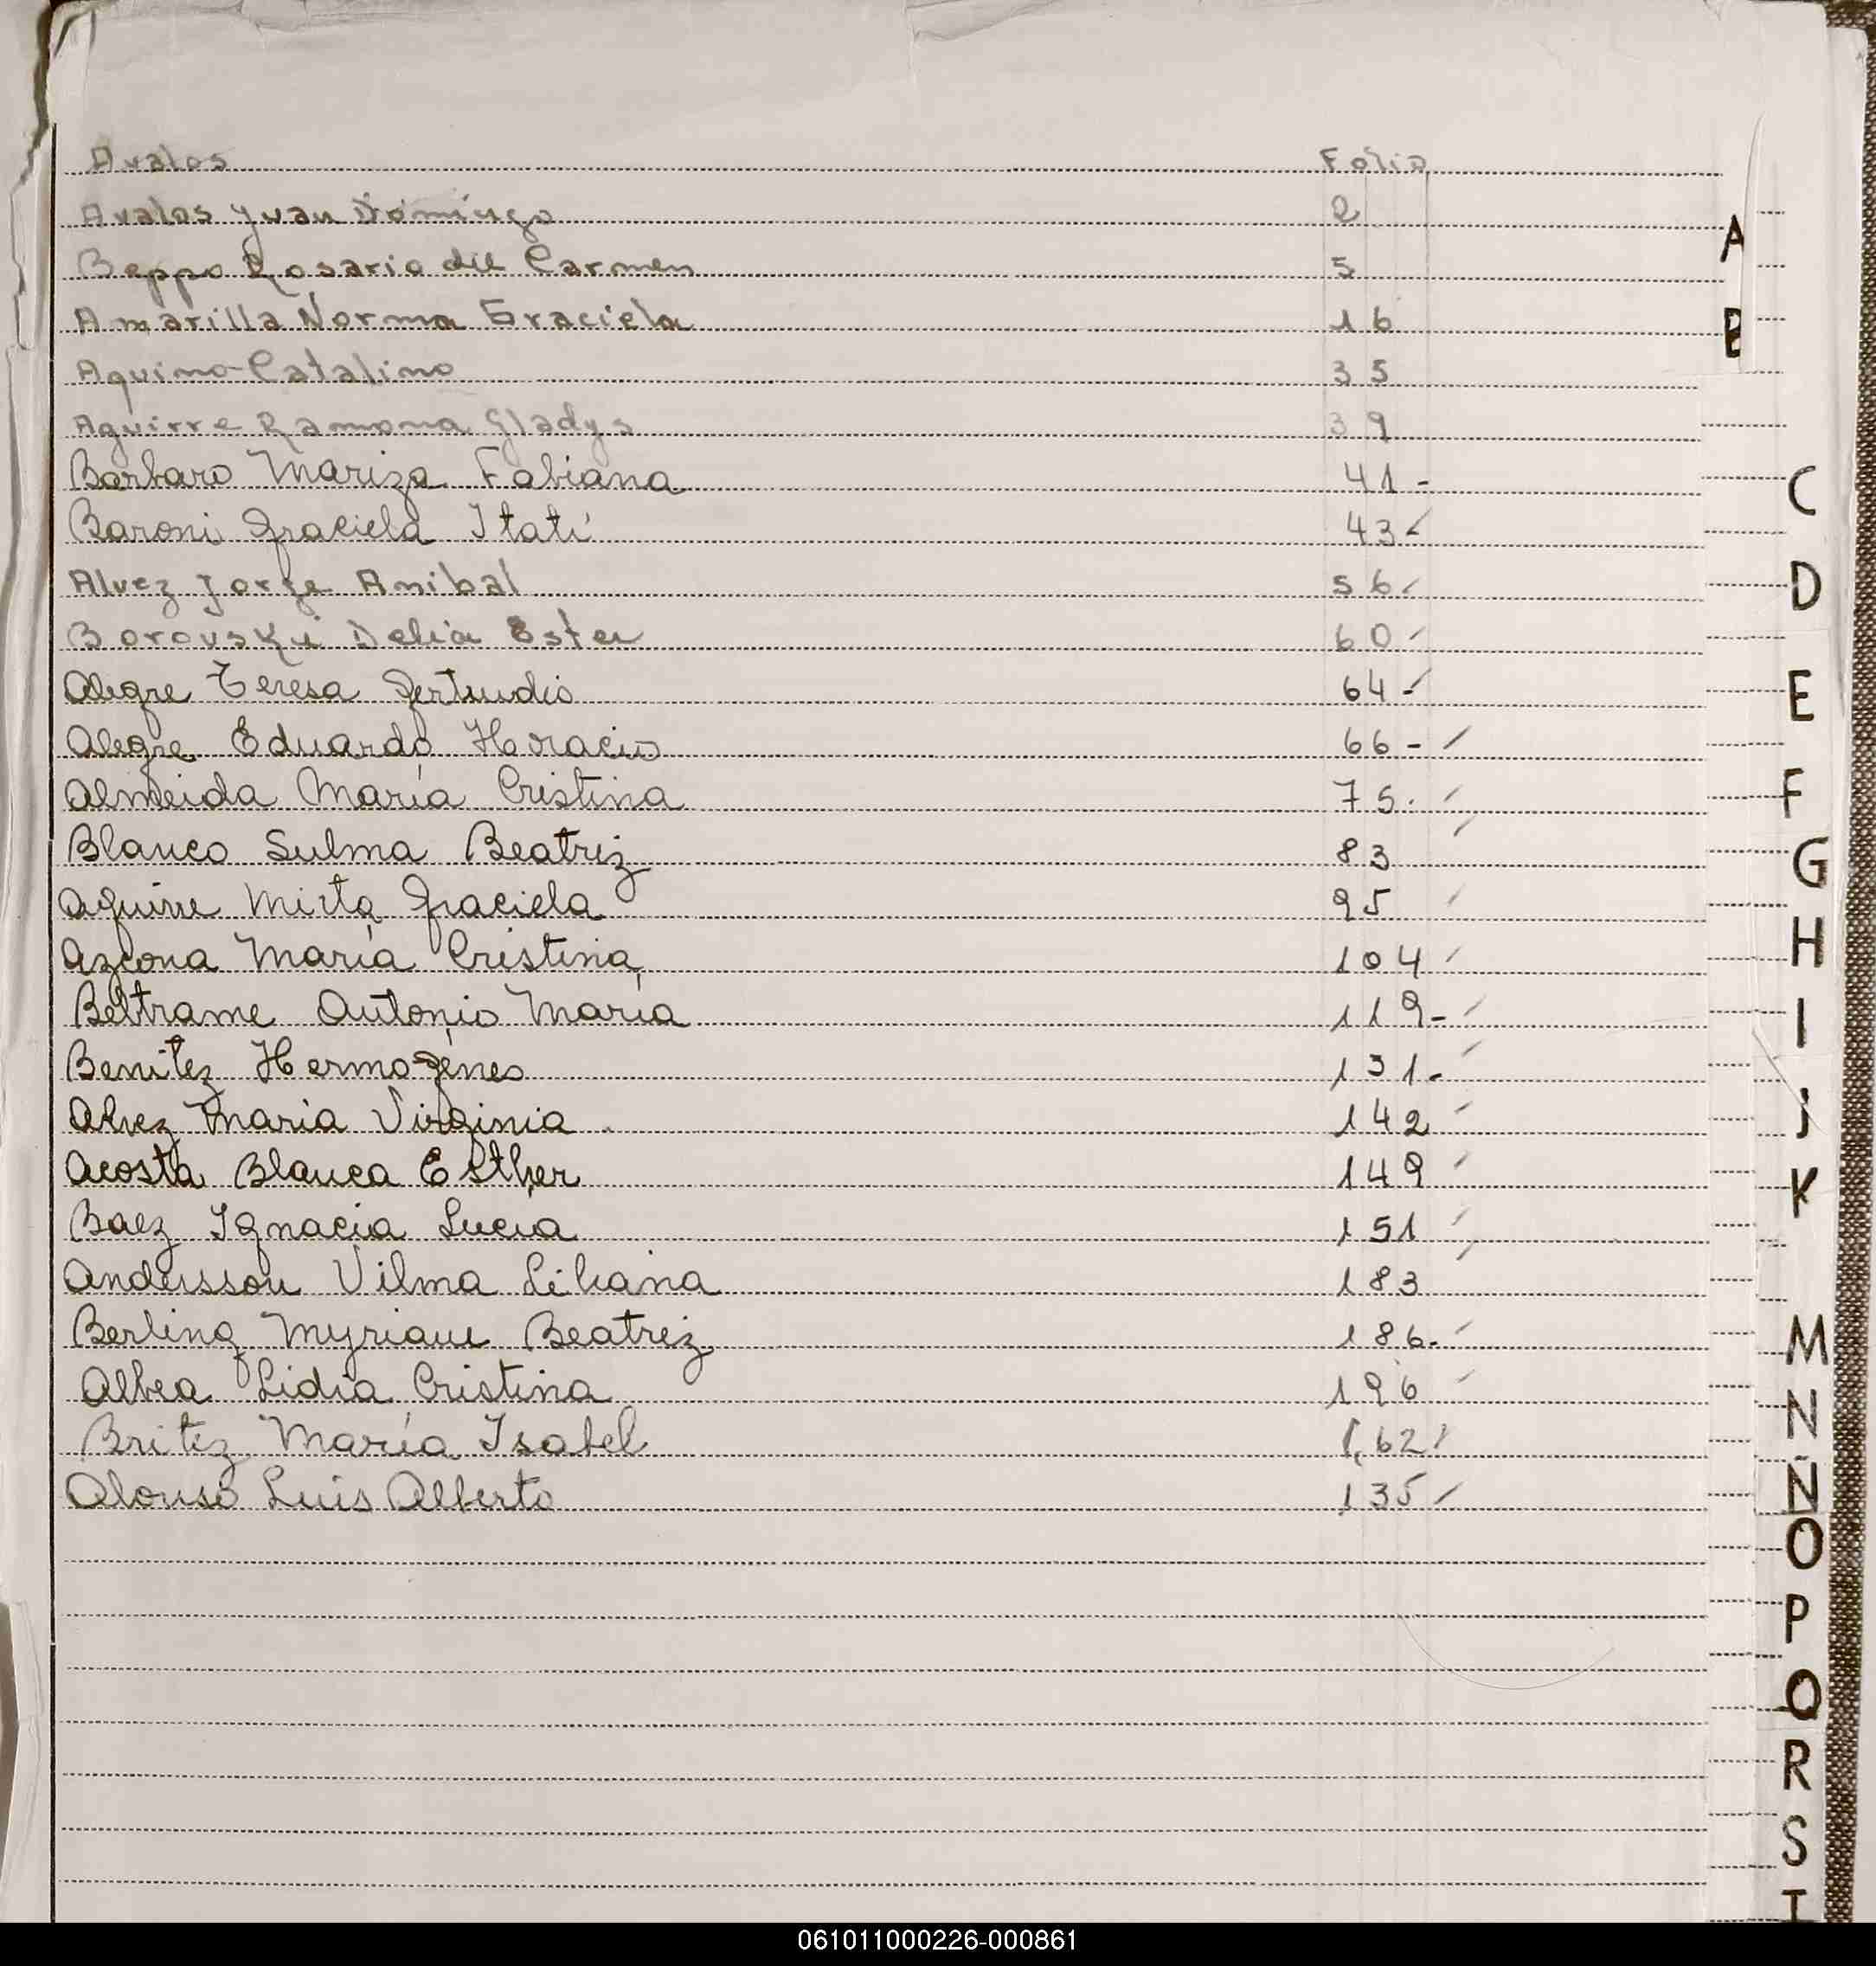 Avalos Folio
Avalos Juan Domingo 2
Beppo Rosario del Carmen 5
Amarilla Norma Graciela 16
Aquino Catalino 35
Aguirre Ramona Gladys 39
Barbaro Mariza Fabiana 41 -
Baroni Graciela Itatí 43
Alvez Jorge Anibal 56
Borovski Delia Ester 60
Alegre Teresa Gertrudis 64 -
Alegre Eduardo Horacio 66 -
Almeida María Cristina 75.
Blanco Sulma Beatriz 83
Aguirre Mirta Graciela 95
Azcona María Cristina 104
Beltrame Antonio María 119 -
Benitez Hermogénes 131 -
Alvez Maria Virginia 142
Acosta Blanca Esther 149
Baez Ignacia Lucia 151
Andersson Vilma Liliana 183
Berling Myriam Beatriz 186 -
Albea Lidia Cristina 196
Britez María Isabel 162
Alonso Luis Alberto 135
A
B
C
D
E
F
G
H
I
J
K
M
N
Ñ
O
P
Q
R
S
T
061011000226-000861